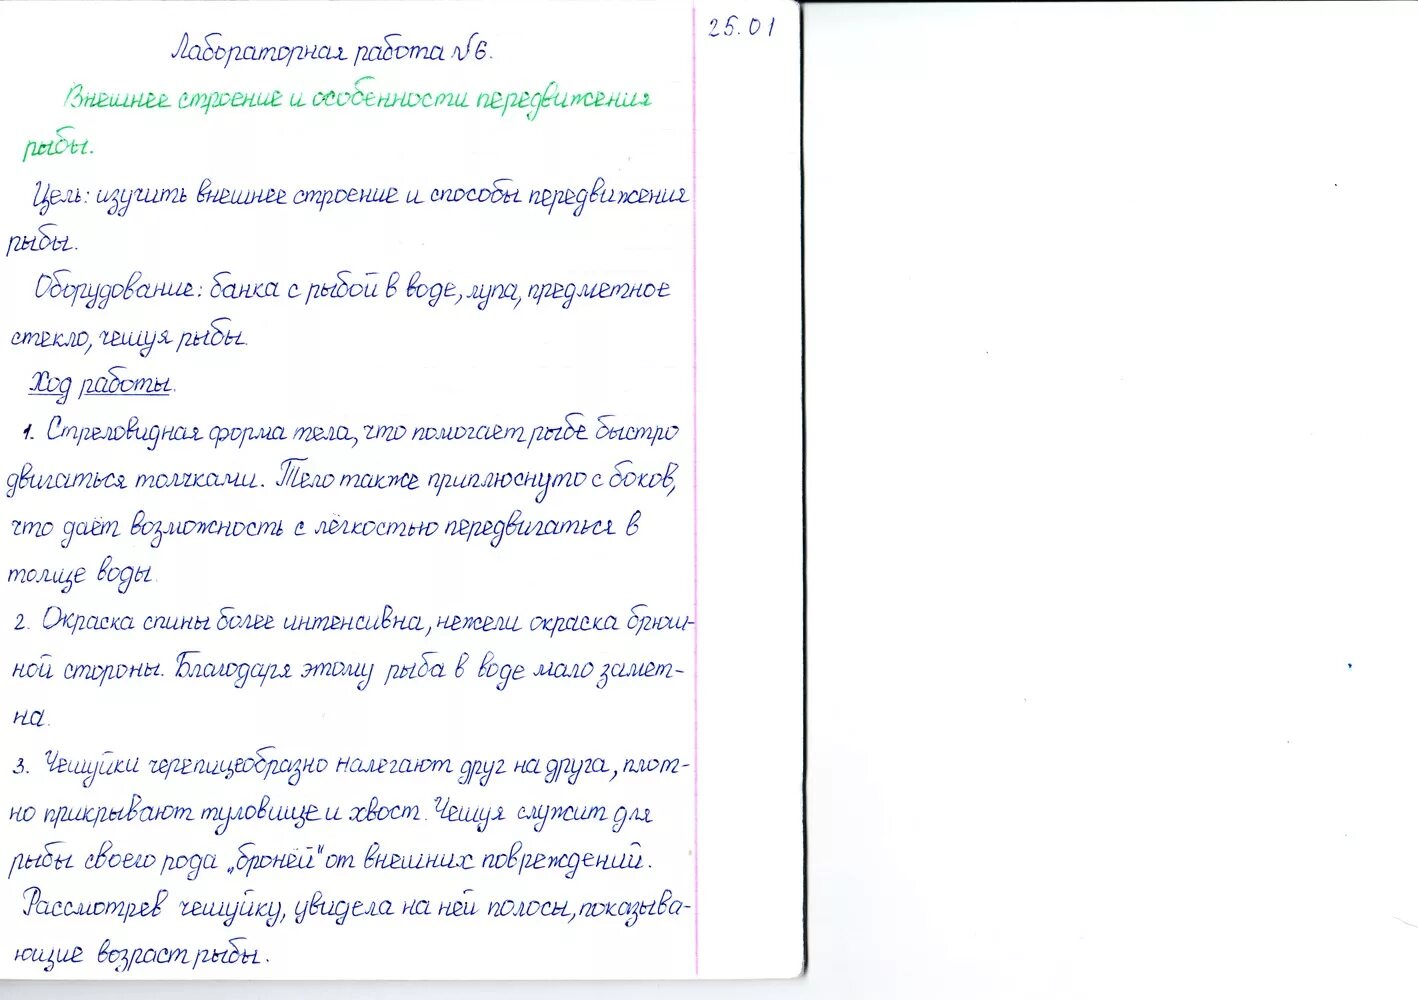 25.01
Лабораторная работа №6.
Внешнее строение и особенности передвижения
рыбы.
Цель: изучить внешнее строение и способы передвижения
рыбы.
Оборудование: банка с рыбой в воде, лупа, предметное
стекло, чешуя рыбы.
Ход работы.
1. Стреловидная форма тела, что помогает рыбе быстро
двигаться толчками. Тело также приплюснуто с боков,
что даёт возможность с лёгкостью передвигаться в
толще воды.
2. Окраска спины более интенсивна, нежели окраска брюш-
ной стороны. Благодаря этому рыба в воде мало замет-
на.
3. Чешуйки черепицеобразно налегают друг на друга, плот-
но прикрывают туловище и хвост. Чешуя служит для
рыбы своего рода „бронёй" от внешних повреждений.
Рассмотрев чешуйку, увидела на ней полосы, показыва-
ющие возраст рыбы.